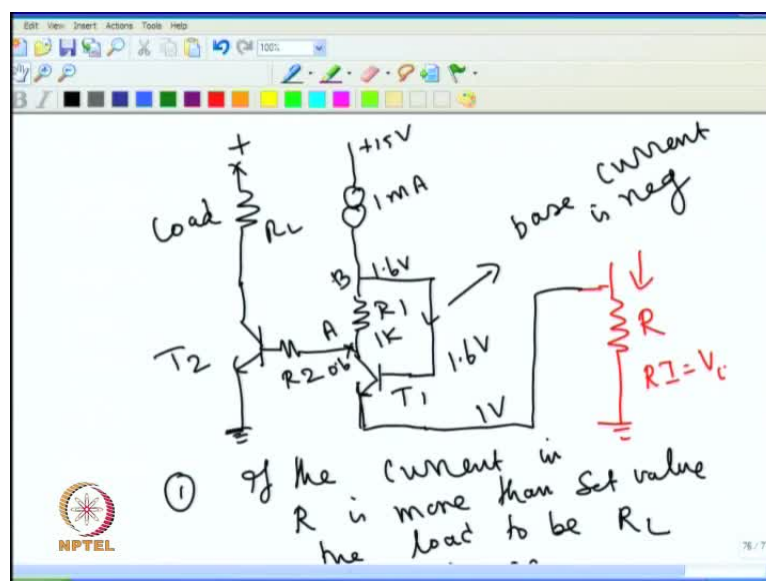 Edit View Insert Actions Tools Help
100%
B I
+
+15V
1mA
Load
RL
base current
is neg
B
1.6V
R1
1K
A
T2
R2
0.6
1.6V
T1
1V
R
RI=Vi
① If the current in
R is more than Set value
the load to be RL
NPTEL
76 / 7